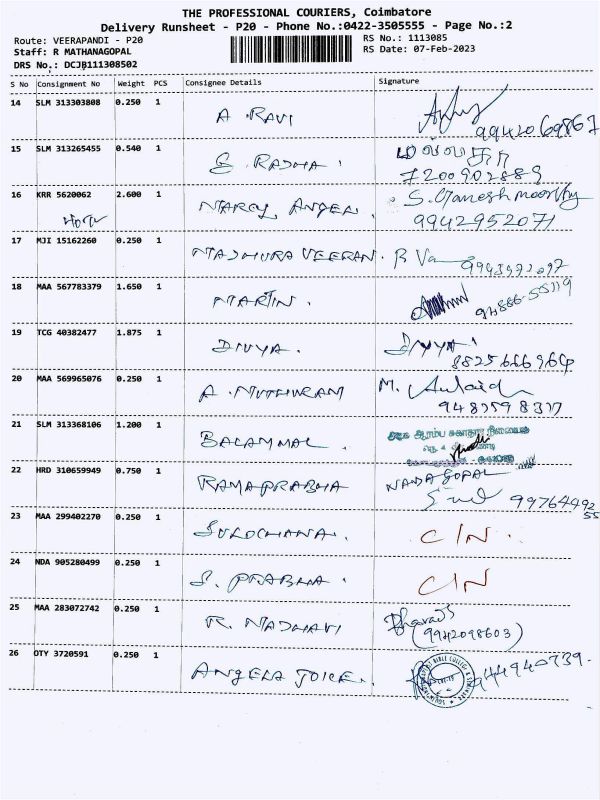 THE PROFESSIONAL COURIERS, Coimbatore
Delivery Runsheet - P20 - Phone No.:0422-3505555 - Page No.:2
Route: VEERAPANDI - P20 RS No.: 1113085
Staff: R MATHANAGOPAL RS Date: 07-Feb-2023
DRS No.: DCJB111308502
S No Consignment No Weight PCS Consignee Details Signature
14 SLM 313303808 0.250 1 A RAVI
9942069867
15 SLM 313265455 0.540 1 S. RADHA.
7200902889
16 KRR 5620062 2.600 1 MARCY ANGEL. S. Ganesh moorthy
9942952071
17 MJI 15162260 0.250 1 MADHURA VEERAN.
18 MAA 567783379 1.650 1 MARTIN. 94886-55119
19 TCG 40382477 1.875 1 DIVYA. Divya
8825666964
20 MAA 569965076 0.250 1 A. MUTHURAM M.
21 SLM 313368106 1.200 1 BALAMMAL.
22 HRD 310659949 0.750 1 RAMAPRABHA NANDAGOPAL
9976449255
23 MAA 299402270 0.250 1 SULOCHANA. C/N
24 NDA 905280499 0.250 1 S. PRABHA. C/N
25 MAA 283072742 0.250 1 R. MADHAVI
(9942098603)
26 OTY 3720591 0.250 1 ANGELA JOICE. 944940739.